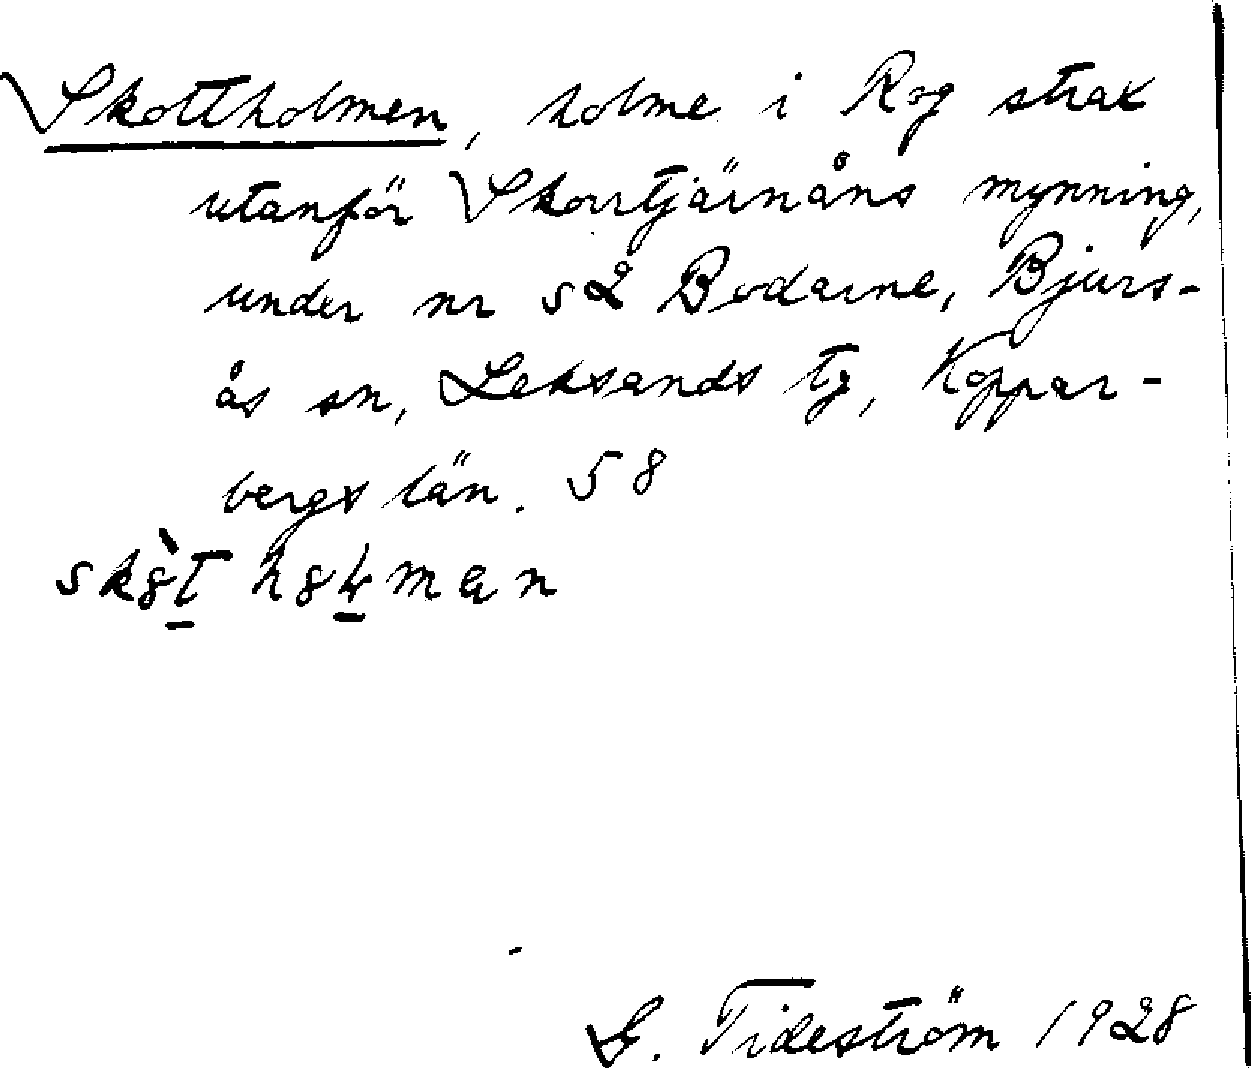 Skottholmen, holme i Rog strax
utanför Skorrtjärnåns mynning,
under nr 52 Bodarne, Bjurs-
ås sn, Leksands tg, Koppar-
bergs län. 58
G. Tideström 1928